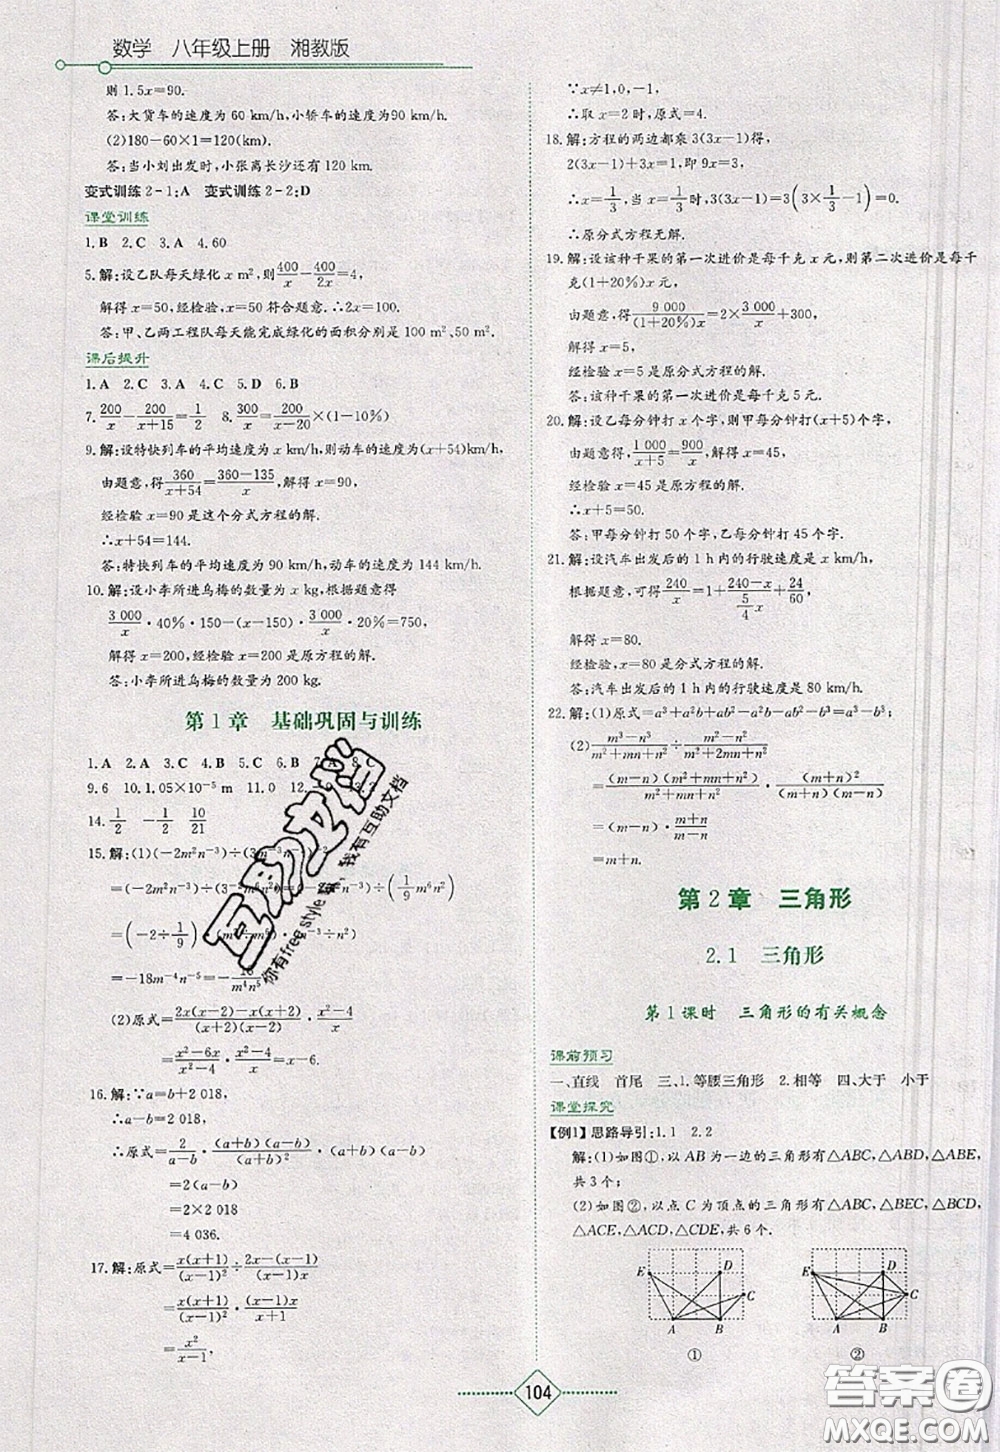 数学　八年级上册　湘教版
则 1.5x=90.
答:大货车的速度为 60 km/h,小轿车的速度为 90 km/h.
(2)180-60×1=120(km).
答:当小刘出发时,小张离长沙还有 120 km.
变式训练 2-1:A　变式训练 2-2:D
课堂训练
1.B　2.C　3.A　4.60
5.解:设乙队每天绿化 x m²,则400/x-400/2x=4,
解得 x=50,经检验,x=50 符合题意.∴2x=100.
答:甲、乙两工程队每天能完成绿化的面积分别是 100 m²、50 m².
课后提升
1.A　2.C　3.A　4.D　5.D　6.B
7.200/x-200/(x+15)=1/2　8.300/x=200/(x-20)×(1-10%)
9.解:设特快列车的平均速度为 x km/h,则动车的速度为(x+54)km/h.
由题意,得360/(x+54)=(360-135)/x,解得 x=90,
经检验 x=90 是这个分式方程的解.
∴x+54=144.
答:特快列车的平均速度为 90 km/h,动车的速度为 144 km/h.
10.解:设小李所进乌梅的数量为 x kg,根据题意得
3 000/x·40%·150-(x-150)·3 000/x·20%=750,
解得 x=200,经检验 x=200 是原方程的解.
答:小李所进乌梅的数量为 200 kg.
第 1 章　基础巩固与训练
1.A　2.A　3.C　4.B　5.C　6.B
9.6　10.1.05×10⁻⁵ m　11.0
14.1/2　-1/2　10/21
15.解:(1)(-2m²n⁻³)÷
=(-2m²n⁻³)÷　÷(1/9 m⁶n²)
=(-2÷1/9)·
=-18m⁻⁴n⁻⁵=-18/m⁴n⁵
(2)原式=(2x(x-2)-x(x+2))/((x+2)(x-2))·(x²-4)/x
=(x²-6x)/(x²-4)·(x²-4)/x=x-6.
16.解:∵a=b+2 018,
∴a-b=2 018,
∴原式=2/(a-b)·(a+b)(a-b)/(a+b)·(a-b)
=2(a-b)
=2×2 018
=4 036.
17.解:原式=x(x+1)/(x-1)²÷(2x-(x-1))/((x-1)x)
=x(x+1)/(x-1)²·(x-1)x/(x+1)
=x²/(x-1),
∵x≠1,0,-1,
∴取 x=2 时,原式=4.
18.解:方程的两边都乘 3(3x-1)得,
2(3x-1)+3x=1,即 9x=3,
∴x=1/3,当 x=1/3时,3(3x-1)=3(3×1/3-1)=0.
∴原分式方程无解.
19.解:设该种干果的第一次进价是每千克 x 元,则第二次进价是每千
克(1+20%)x 元,
由题意,得9 000/(1+20%)x=2×3 000/x+300,
解得 x=5,
经检验 x=5 是原分式方程的解.
答:该种干果的第一次进价是每千克 5 元.
20.解:设乙每分钟打 x 个字,则甲每分钟打(x+5)个字,
由题意得,1 000/(x+5)=900/x,解得 x=45,
经检验:x=45 是原方程的解.
∴x+5=50.
答:甲每分钟打 50 个字,乙每分钟打 45 个字.
21.解:设汽车出发后的 1 h内的行驶速度是 x km/h,
根据题意,可得240/x=1+(240-x)/(5/4 x)+24/60,
解得 x=80.
经检验,x=80 是分式方程的解.
答:汽车出发后的 1 h内的行驶速度是 80 km/h.
22.解:(1)原式=a³+a²b+ab²-a²b-ab²-b³=a³-b³;
(2)(m³-n³)/(m²+mn+n²)÷(m²-n²)/(m²+2mn+n²)
=(m-n)(m²+mn+n²)/(m²+mn+n²)÷(m+n)(m-n)/(m+n)²
=(m-n)·(m+n)/(m-n)
=m+n.
第 2 章　三角形
2.1　三角形
第 1 课时　三角形的有关概念
课前预习
一、直线　首尾　三、1.等腰三角形　2.相等　四、大于　小于
课堂探究
【例1】思路导引:1.1　2.2
解:(1)如图①,以 AB 为一边的三角形有△ABC,△ABD,△ABE,
共 3 个;
(2)如图②,以点 C 为顶点的三角形有△ABC,△BEC,△BCD,
△ACE,△ACD,△CDE,共 6 个.
E　D　C　A　B
①
E　D　C　A　B
②
104
互助文档
你有free style 嘛，我有互助文档
答案圈
MXQE.COM